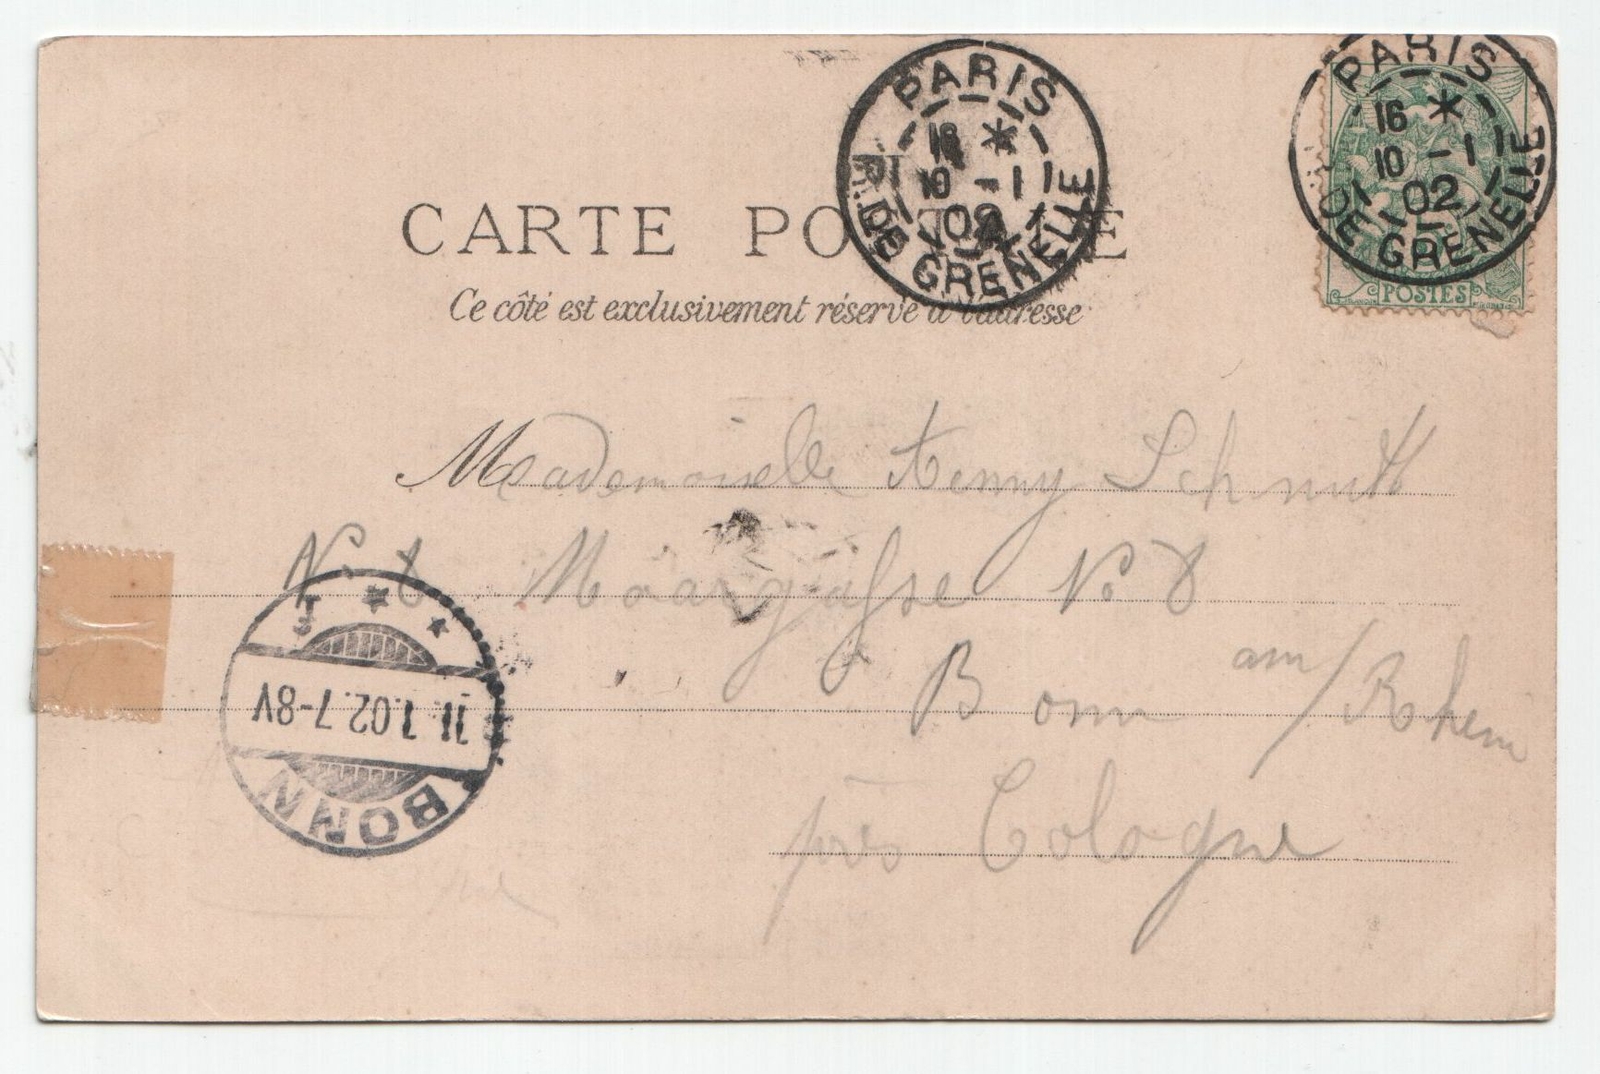 PARIS
16 *
10 -1
02
R. DE GRENELLE
PARIS
16 *
10 -1
02
DE GRENELLE
POSTES
CARTE POSTALE
Ce côté est exclusivement réservé à l'adresse
Mademoiselle Aenny Schmitt
N. 8 Maargasse No 8
Bonn am/Rhein
près Cologne
11.1.02.7-8V
BONN